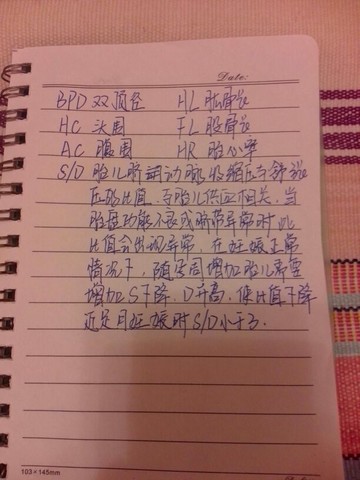 Date:
BPD 双顶径 HL 肱骨长
HC 头围 FL 股骨长
AC 腹围 HR 胎心率
S/D 胎儿脐动脉收缩压与舒张
压的比值,与胎儿供血相关,当
胎盘功能不良或脐带异常时此
比值会出现异常,在妊娠正常
情况下,随孕周增加胎儿需要
增加S下降,D升高,使比值下降
近足月妊娠时S/D小于3.
103×145mm